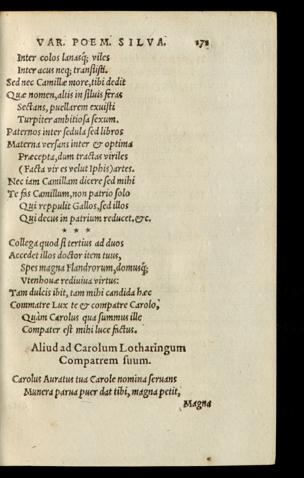 VAR. POEM. SILVA. 172
Inter colos lanasq́; viles
Inter acus neq; transisti.
Sed nec Camillæ more, tibi dedit
Quæ nomen, altis in siluis feras
Sectans, puellarem exuisti
Turpiter ambitiosa sexum.
Paternos inter sedula sed libros
Materna versans inter & optima
Præcepta, dum tractas viriles
(Facta vir es velut Iphis) artes.
Nec iam Camillam dicere sed mihi
Te fas Camillum, non patrio solo
Qui reppulit Gallos, sed illos
Qui decus in patrium reducet. &c.
* * *
Collega quod si tertius ad duos
Accedet illos doctor item tuus,
Spes magna Flandrorum, domusq́;
Vtenhouæ rediuiua virtus:
Tam dulcis ibit, tam mihi candida hæc
Commatre Lux te & compatre Carolo,
Quàm Carolus qua summus ille
Compater est mihi luce factus.
Aliud ad Carolum Lotharingum
Compatrem suum.
Carolus Auratus tua Carole nomina seruans
Munera parua puer dat tibi, magna petit,
Magna